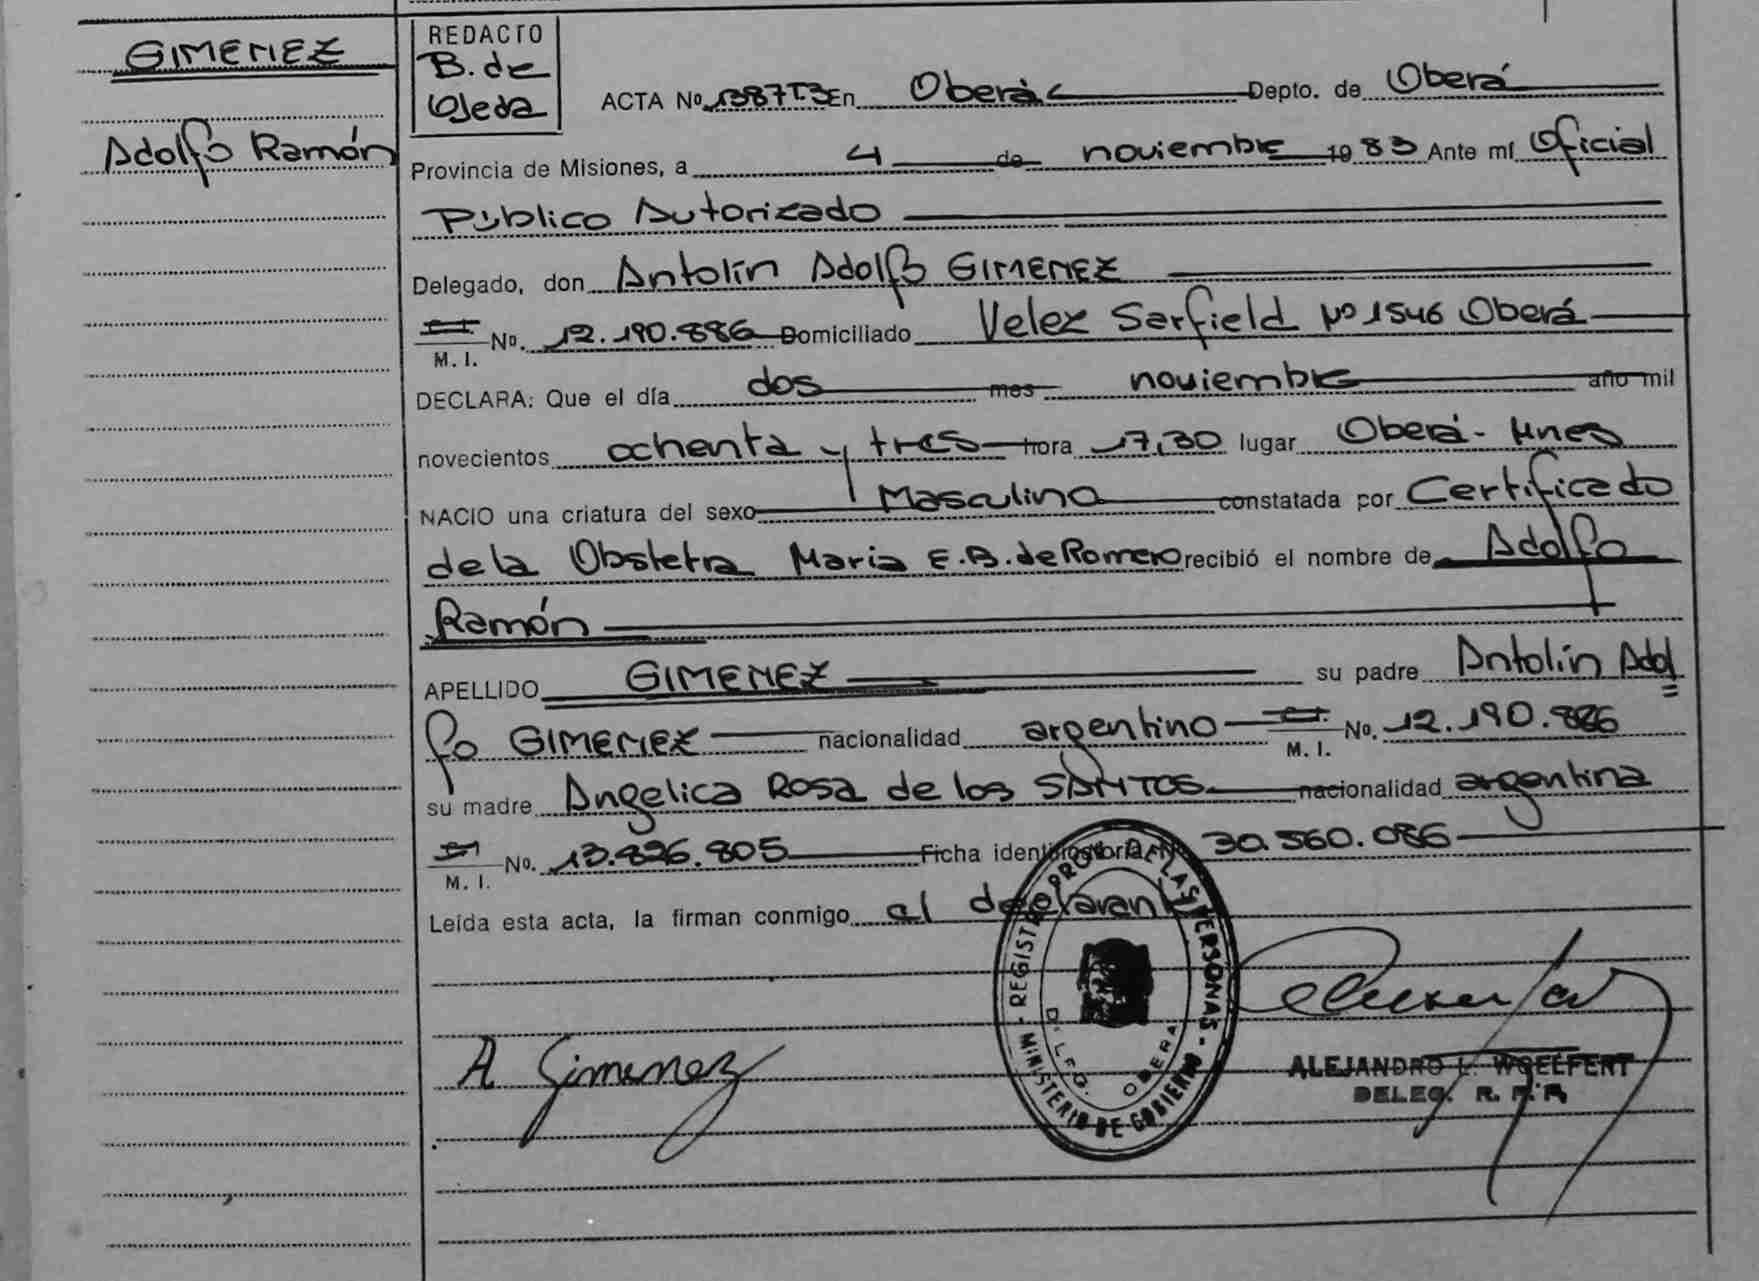 GIMENEZ
Adolfo Ramón
REDACTO
B. de
Ojeda
ACTA No 1387T3 En Oberá Depto. de Oberá
Provincia de Misiones, a 4 de noviembre 1983 Ante mí Oficial
Público Autorizado
Delegado, don Antolín Adolfo GIMENEZ
M. I. No. 12.190.886 Domiciliado Velez Sarfield Nº 1546 Oberá
DECLARA: Que el día dos mes noviembre año mil
novecientos ochenta y tres hora 17,30 lugar Oberá - Mnes
NACIO una criatura del sexo Masculino constatada por Certificado
de la Obstetra Maria E.B. de Romero recibió el nombre de Adolfo
Ramón
APELLIDO GIMENEZ su padre Antolín Adol
fo GIMENEZ nacionalidad argentino M. I. No. 12.190.886
su madre Angelica Rosa de los SANTOS nacionalidad argentina
M. I. No. 13.826.805 Ficha identificatoria 30.560.086
Leída esta acta, la firman conmigo el declarante
REGISTRO PROV. DE LAS PERSONAS - MINISTERIO DE GOBIERNO -
OBERA
A Gimenez
ALEJANDRO L. WOELFERT
DELEG. R. P. P.